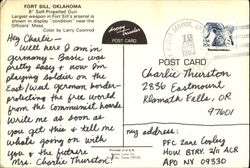 FORT SILL, OKLAHOMA
8" Self-Propelled Gun
Largest weapon in Fort Sill's arsenal is
shown in display "condition" near the
Officers' Mess.
Color by Larry Coonrod
POST CARD
POST CARD
Hey Charlie-
Well here I am in
Germany - Basic was
pretty easy & now I'm
playing soldier on the
East/West German border
protecting the free world
from the Communist hoards.
Write me as soon as
you get this & tell me
what's going on with
you & the future
Mrs. Charlie Thurston!
20c
Charlie Thurston
2856 Eastmount
Klamath Falls, OR
97601
my address:
PFC Zane Cooley
How. BTRY. 2/11 ACR
APO NY 09330